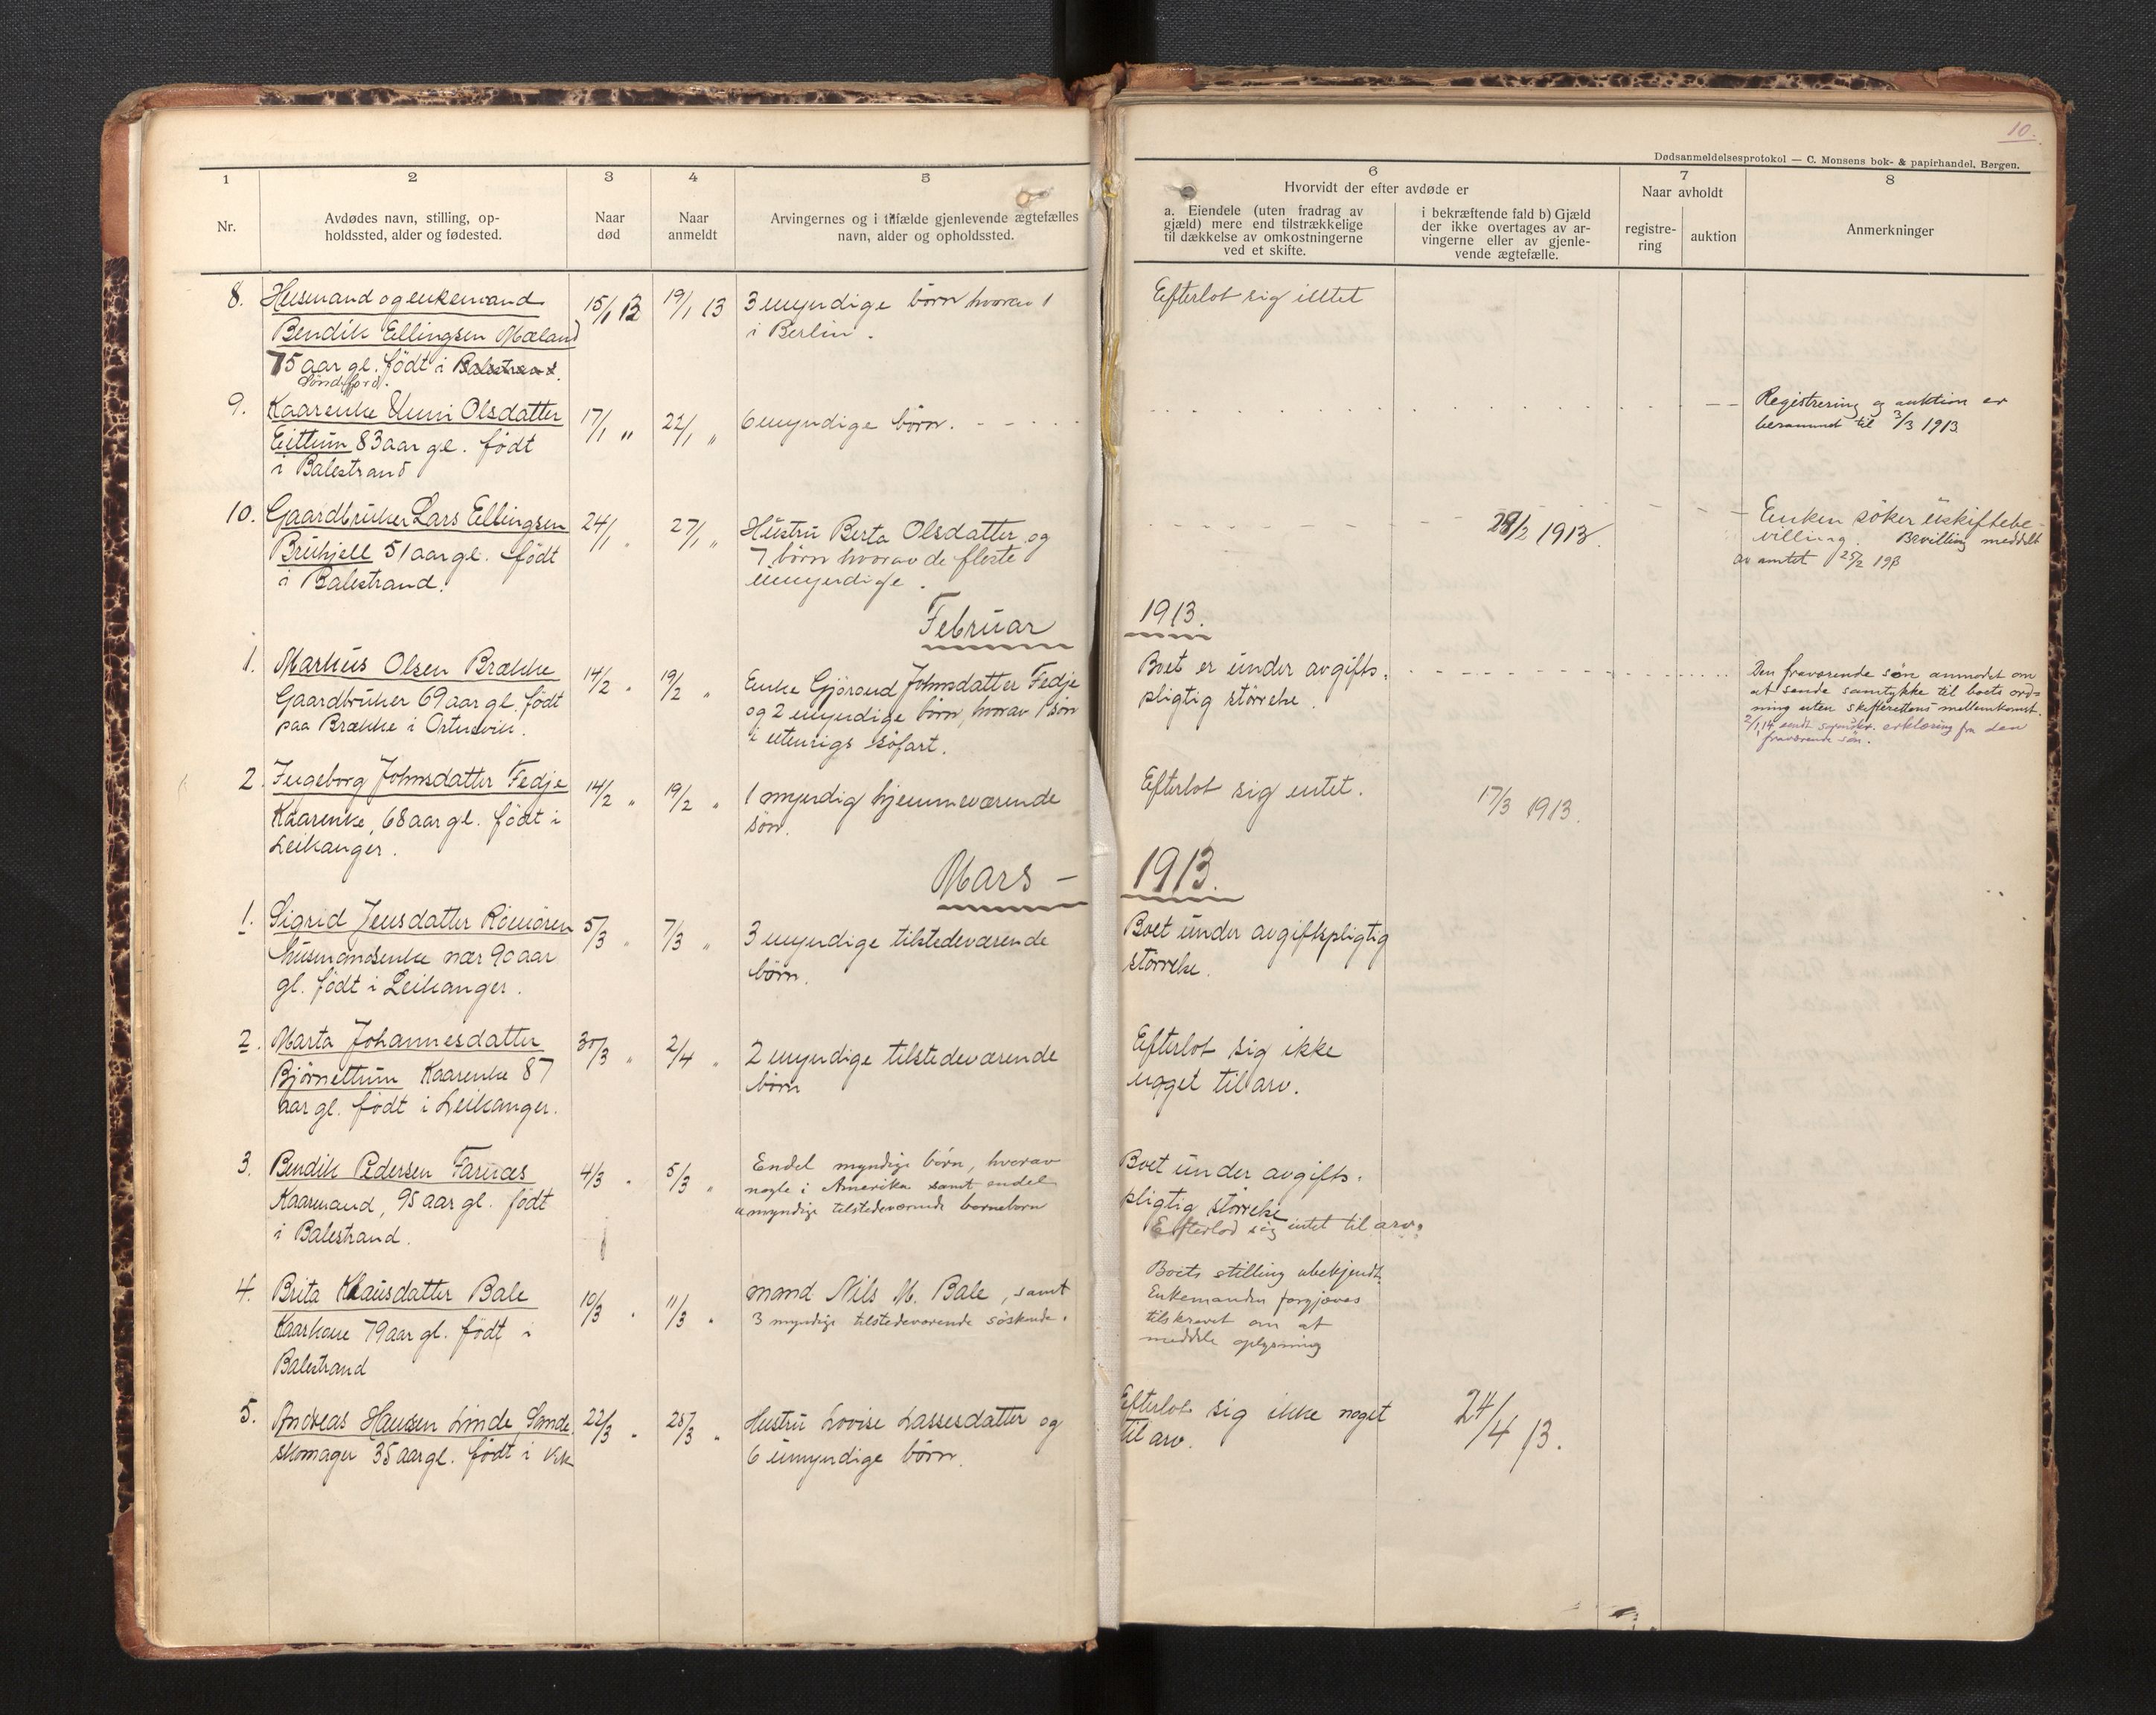 10.
Dødsanmeldelsesprotokol — C. Monsens bok- & papirhandel, Bergen.
1
2
3
4
5
6
7
8
Nr.
Avdødes navn, stilling, op-
holdssted, alder og fødested.
Naar
død
Naar
anmeldt
Arvingernes og i tilfælde gjenlevende ægtefælles
navn, alder og opholdssted.
Hvorvidt der efter avdøde er
a. Eiendele (uten fradrag av
gjæld) mere end tilstrækkelige
til dækkelse av omkostningerne
ved et skifte.
i bekræftende fald b) Gjæld
der ikke overtages av ar-
vingerne eller av gjenle-
vende ægtefælle.
Naar avholdt
registre-
ring
auktion
Anmerkninger
8.
Husmand og enkemand
Bendik Ellingsen Mæland
75 aar gl. født i Balestrand.
Søndfjord.
15/1 13
19/1 13
3 myndige børn hvorav 1
i Berlin.
Efterlot sig intet
9.
Kaarenke Unni Olsdatter
Eittum 83 aar gl. født
i Balestrand
17/1 "
22/1 "
6 myndige børn.
Registrering og auktion er
berammet til 3/3 1913
10.
Gaardbruker Lars Ellingsen
Bruhjell 51 aar gl. født
i Balestrand.
24/1 "
27/1 "
Hustru Berta Olsdatter og
7 børn hvorav de fleste
umyndige.
28/2 1913.
Enken søker uskiftebe-
villing. Bevilling meddelt
av amtet 25/2 1913
Februar 1913.
1.
Markus Olsen Brække
Gaardbruker 69 aar gl. født
paa Brække i Ortnevik.
14/2 "
19/2 "
Enke Gjørond Johnsdatter Fedje
og 2 myndige børn, hvorav 1 søn
i utenrigs søfart.
Boet er under avgifts-
pligtig størrelse.
Den fraværende søn anmodet om
at sende samtykke til boets ord-
ning uten skifterettens mellemkomst.
2/1 14 sendt erklæring fra den
fraværende søn.
2.
Ingeborg Johnsdatter Fedje
Kaarenke, 68 aar gl. født i
Leikanger.
14/2 "
19/2 "
1 myndig hjemmeværende
søn.
Efterlot sig intet.
17/3 1913.
Mars — 1913.
1.
Sigrid Jensdatter Rømøren
husmandsenke nær 90 aar
gl. født i Leikanger.
5/3 "
7/3 "
3 myndige tilstedeværende
børn.
Boet under avgiftspligtig
størrelse.
2.
Marta Johannesdatter
Bjørnettum Kaarenke 87
aar gl. født i Leikanger.
30/3 "
2/4 "
2 myndige tilstedeværende
børn
Efterlot sig ikke
noget til arv.
3.
Bendik Pedersen Farnæs
Kaarmand, 95 aar gl. født
i Balestrand.
4/3 "
5/3 "
Endel myndige børn, hvorav
nogle i Amerika samt endel
umyndige tilstedeværende barnebarn
Boet under avgifts-
pligtig størrelse
Efterlod sig intet til arv.
4.
Brita Klausdatter Bale
Kaarkone 79 aar gl. født i
Balestrand
10/3 "
11/3 "
mand Nils M. Bale, samt
3 myndige tilstedeværende søskende.
Boets stilling ubekjendt.
Enkemanden forgjæves
tilskrevet om at
meddele oplysning
5.
Andreas Hansen Linde, Sande
skomager 35 aar gl. født i Vik
22/3 "
25/3 "
Hustru Lovise Lassesdatter og
6 umyndige børn.
Efterlot sig ikke noget
til arv.
24/4 13.